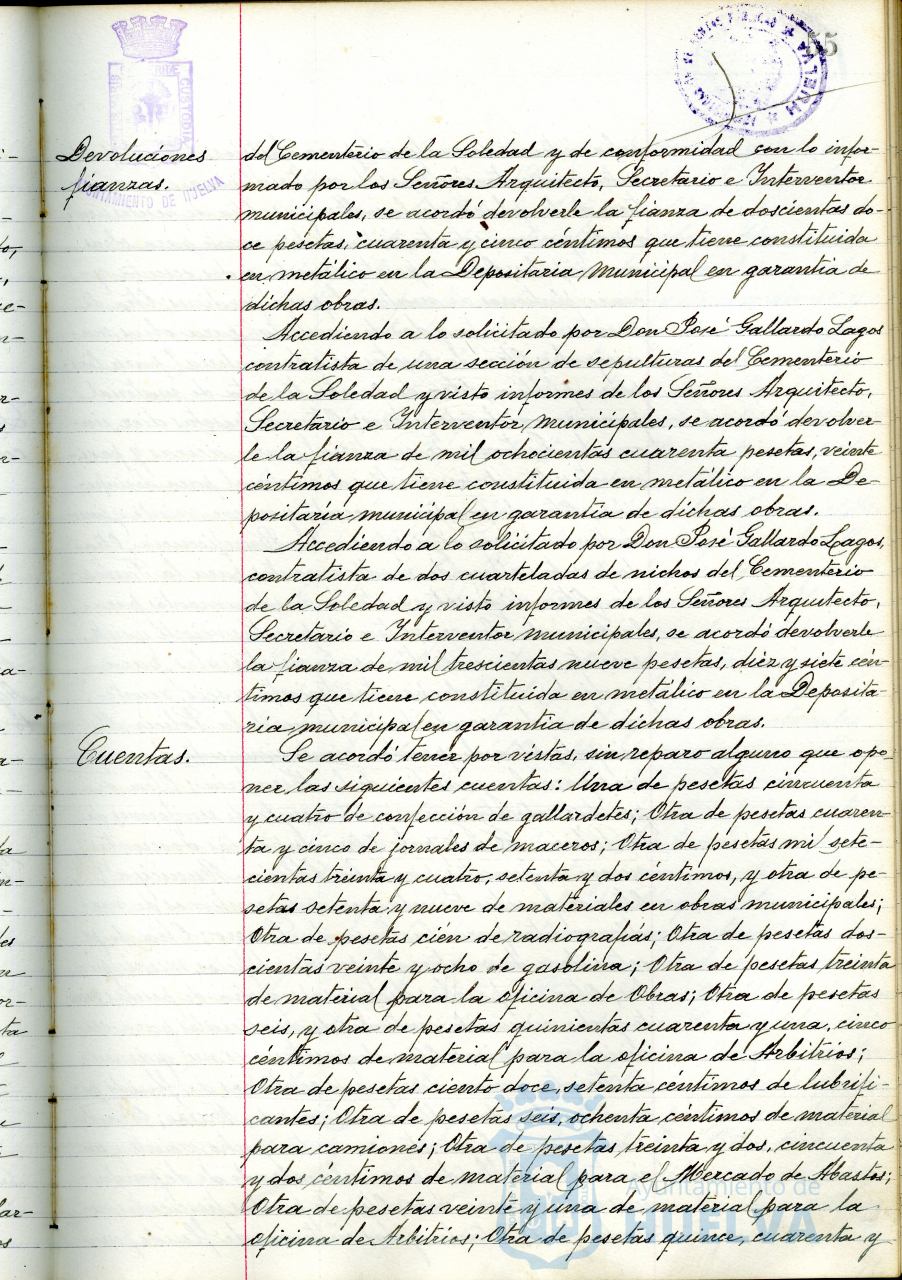 55
HUELVA
CUSTODIA
AYUNTAMIENTO DE HUELVA
Devoluciones
fianzas.
del Cementerio de la Soledad y de conformidad con lo infor-
mado por los Señores Arquitecto, Secretario e Interventor
municipales, se acordó devolverle la fianza de doscientas do-
ce pesetas, cuarenta y cinco céntimos que tiene constituida
en metálico en la Depositaria Municipal en garantia de
dichas obras.
Accediendo a lo solicitado por Don José Gallardo Lagos
contratista de una sección de sepulturas del Cementerio
de la Soledad y visto informes de los Señores Arquitecto,
Secretario e Interventor municipales, se acordó devolver-
le la fianza de mil ochocientas cuarenta pesetas, veinte
céntimos que tiene constituida en metálico en la De-
positaría municipal en garantia de dichas obras.
Accediendo a lo solicitado por Don José Gallardo Lagos,
contratista de dos cuarteladas de nichos del Cementerio
de la Soledad y visto informes de los Señores Arquitecto,
Secretario e Interventor municipales, se acordó devolverle
la fianza de mil trescientas nueve pesetas, diez y siete cén-
timos que tiene constituida en metálico en la Deposita-
ria municipal en garantia de dichas obras.
Cuentas.
Se acordó tener por vistas, sin reparo alguno que opo-
ner las siguientes cuentas: Una de pesetas cincuenta
y cuatro de confección de gallardetes; Otra de pesetas cuaren-
ta y cinco de jornales de maceros; Otra de pesetas mil sete-
cientas treinta y cuatro, setenta y dos céntimos, y otra de pe-
setas setenta y nueve de materiales en obras municipales;
Otra de pesetas cién de radiografías; Otra de pesetas dos-
cientas veinte y ocho de gasolina; Otra de pesetas treinta
de material para la oficina de Obras; Otra de pesetas
seis, y otra de pesetas quinientas cuarenta y una, cinco
céntimos de material para la oficina de Arbitrios;
Otra de pesetas ciento doce, setenta céntimos de lubrifi-
cantes; Otra de pesetas seis, ochenta céntimos de material
para camiones; Otra de pesetas treinta y dos, cincuenta
y dos céntimos de material para el Mercado de Abastos;
Otra de pesetas veinte y una de material para la
oficina de Arbitrios; Otra de pesetas quince, cuarenta y
Ayuntamiento de
HUELVA